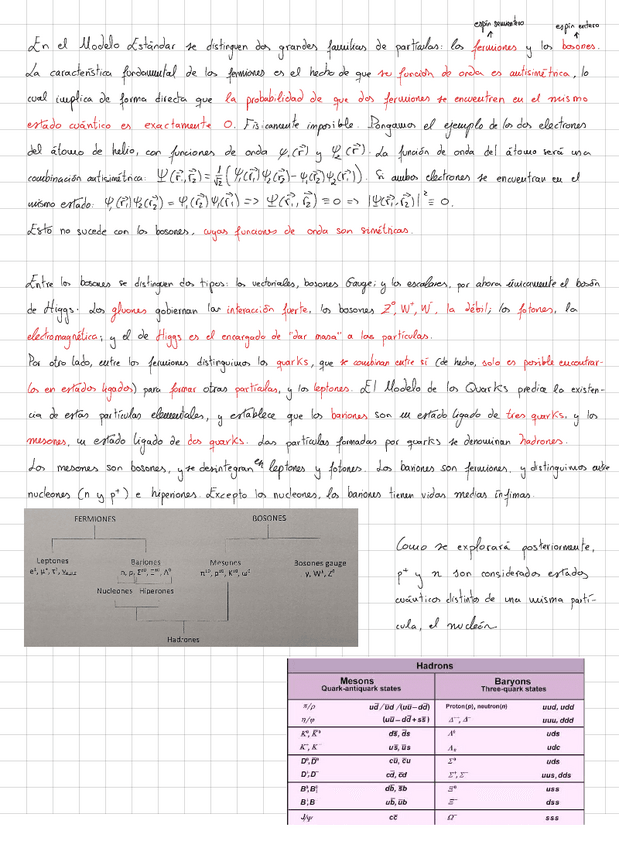 espín semientero
espín entero
En el Modelo Estándar se distinguen dos grandes familias de partículas: los fermiones y los bosones.
La característica fundamental de los fermiones es el hecho de que su función de onda es antisimétrica, lo
cual implica de forma directa que la probabilidad de que dos fermiones se encuentren en el mismo
estado cuántico es exactamente 0. Físicamente imposible. Pongamos el ejemplo de los dos electrones
del átomo de helio, con funciones de onda ψ₁(r⃗) y ψ₂(r⃗). La función de onda del átomo será una
combinación antisimétrica: Ψ(r⃗₁,r⃗₂) = 1/√2 (ψ₁(r⃗₁)ψ₂(r⃗₂) - ψ₁(r⃗₂)ψ₂(r⃗₁)). Si ambos electrones se encuentran en el
mismo estado: ψ₁(r⃗₁)ψ₂(r⃗₂) = ψ₁(r⃗₂)ψ₂(r⃗₁) => Ψ(r⃗₁,r⃗₂) ≡ 0 => |Ψ(r⃗₁,r⃗₂)|² ≡ 0.
Esto no sucede con los bosones, cuyas funciones de onda son simétricas.
Entre los bosones se distinguen dos tipos: los vectoriales, bosones Gauge; y los escalares, por ahora únicamente el bosón
de Higgs. Los gluones gobiernan la interacción fuerte, los bosones Z⁰, W⁺, W⁻, la débil; los fotones, la
electromagnética; y el de Higgs es el encargado de "dar masa" a las partículas.
Por otro lado, entre los fermiones distinguimos los quarks, que se combinan entre sí (de hecho, solo es posible encontrar-
los en estados ligados) para formar otras partículas, y los leptones. El Modelo de los Quarks predice la existen-
cia de estas partículas elementales, y establece que los bariones son un estado ligado de tres quarks, y los
mesones, un estado ligado de dos quarks. Las partículas formadas por quarks se denominan hadrones.
Los mesones son bosones, y se desintegran en leptones y fotones. Los bariones son fermiones, y distinguimos entre
nucleones (n y p⁺) e hiperiones. Excepto los nucleones, los bariones tienen vidas medias ínfimas.
FERMIONES BOSONES
Leptones Bariones Mesones Bosones gauge
Nucleones Hiperones
Hadrones
Como se explorará posteriormente,
p⁺ y n son considerados estados
cuánticos distintos de una misma partí-
cula, el nucleón.
Hadrons
Mesons Baryons
Quark-antiquark states Three-quark states
π/ρ ud̅ / u̅d /(uu̅ − dd̅) Proton(p), neutron(n) uud, udd
η/ψ (uu̅ − dd̅ + ss̅) uuu, ddd
K⁰, K̅⁰ ds̅, d̅s Λ⁰ uds
K⁺, K⁻ us̅, u̅s udc
D⁰, D̅⁰ cu̅, c̅u Σ⁰ uds
D⁺, D⁻ cd̅, c̅d Σ⁺, Σ⁻ uus, dds
db̅, s̅b Ξ⁰ uss
ub̅, u̅b Ξ⁻ dss
J/ψ cc̅ Ω⁻ sss